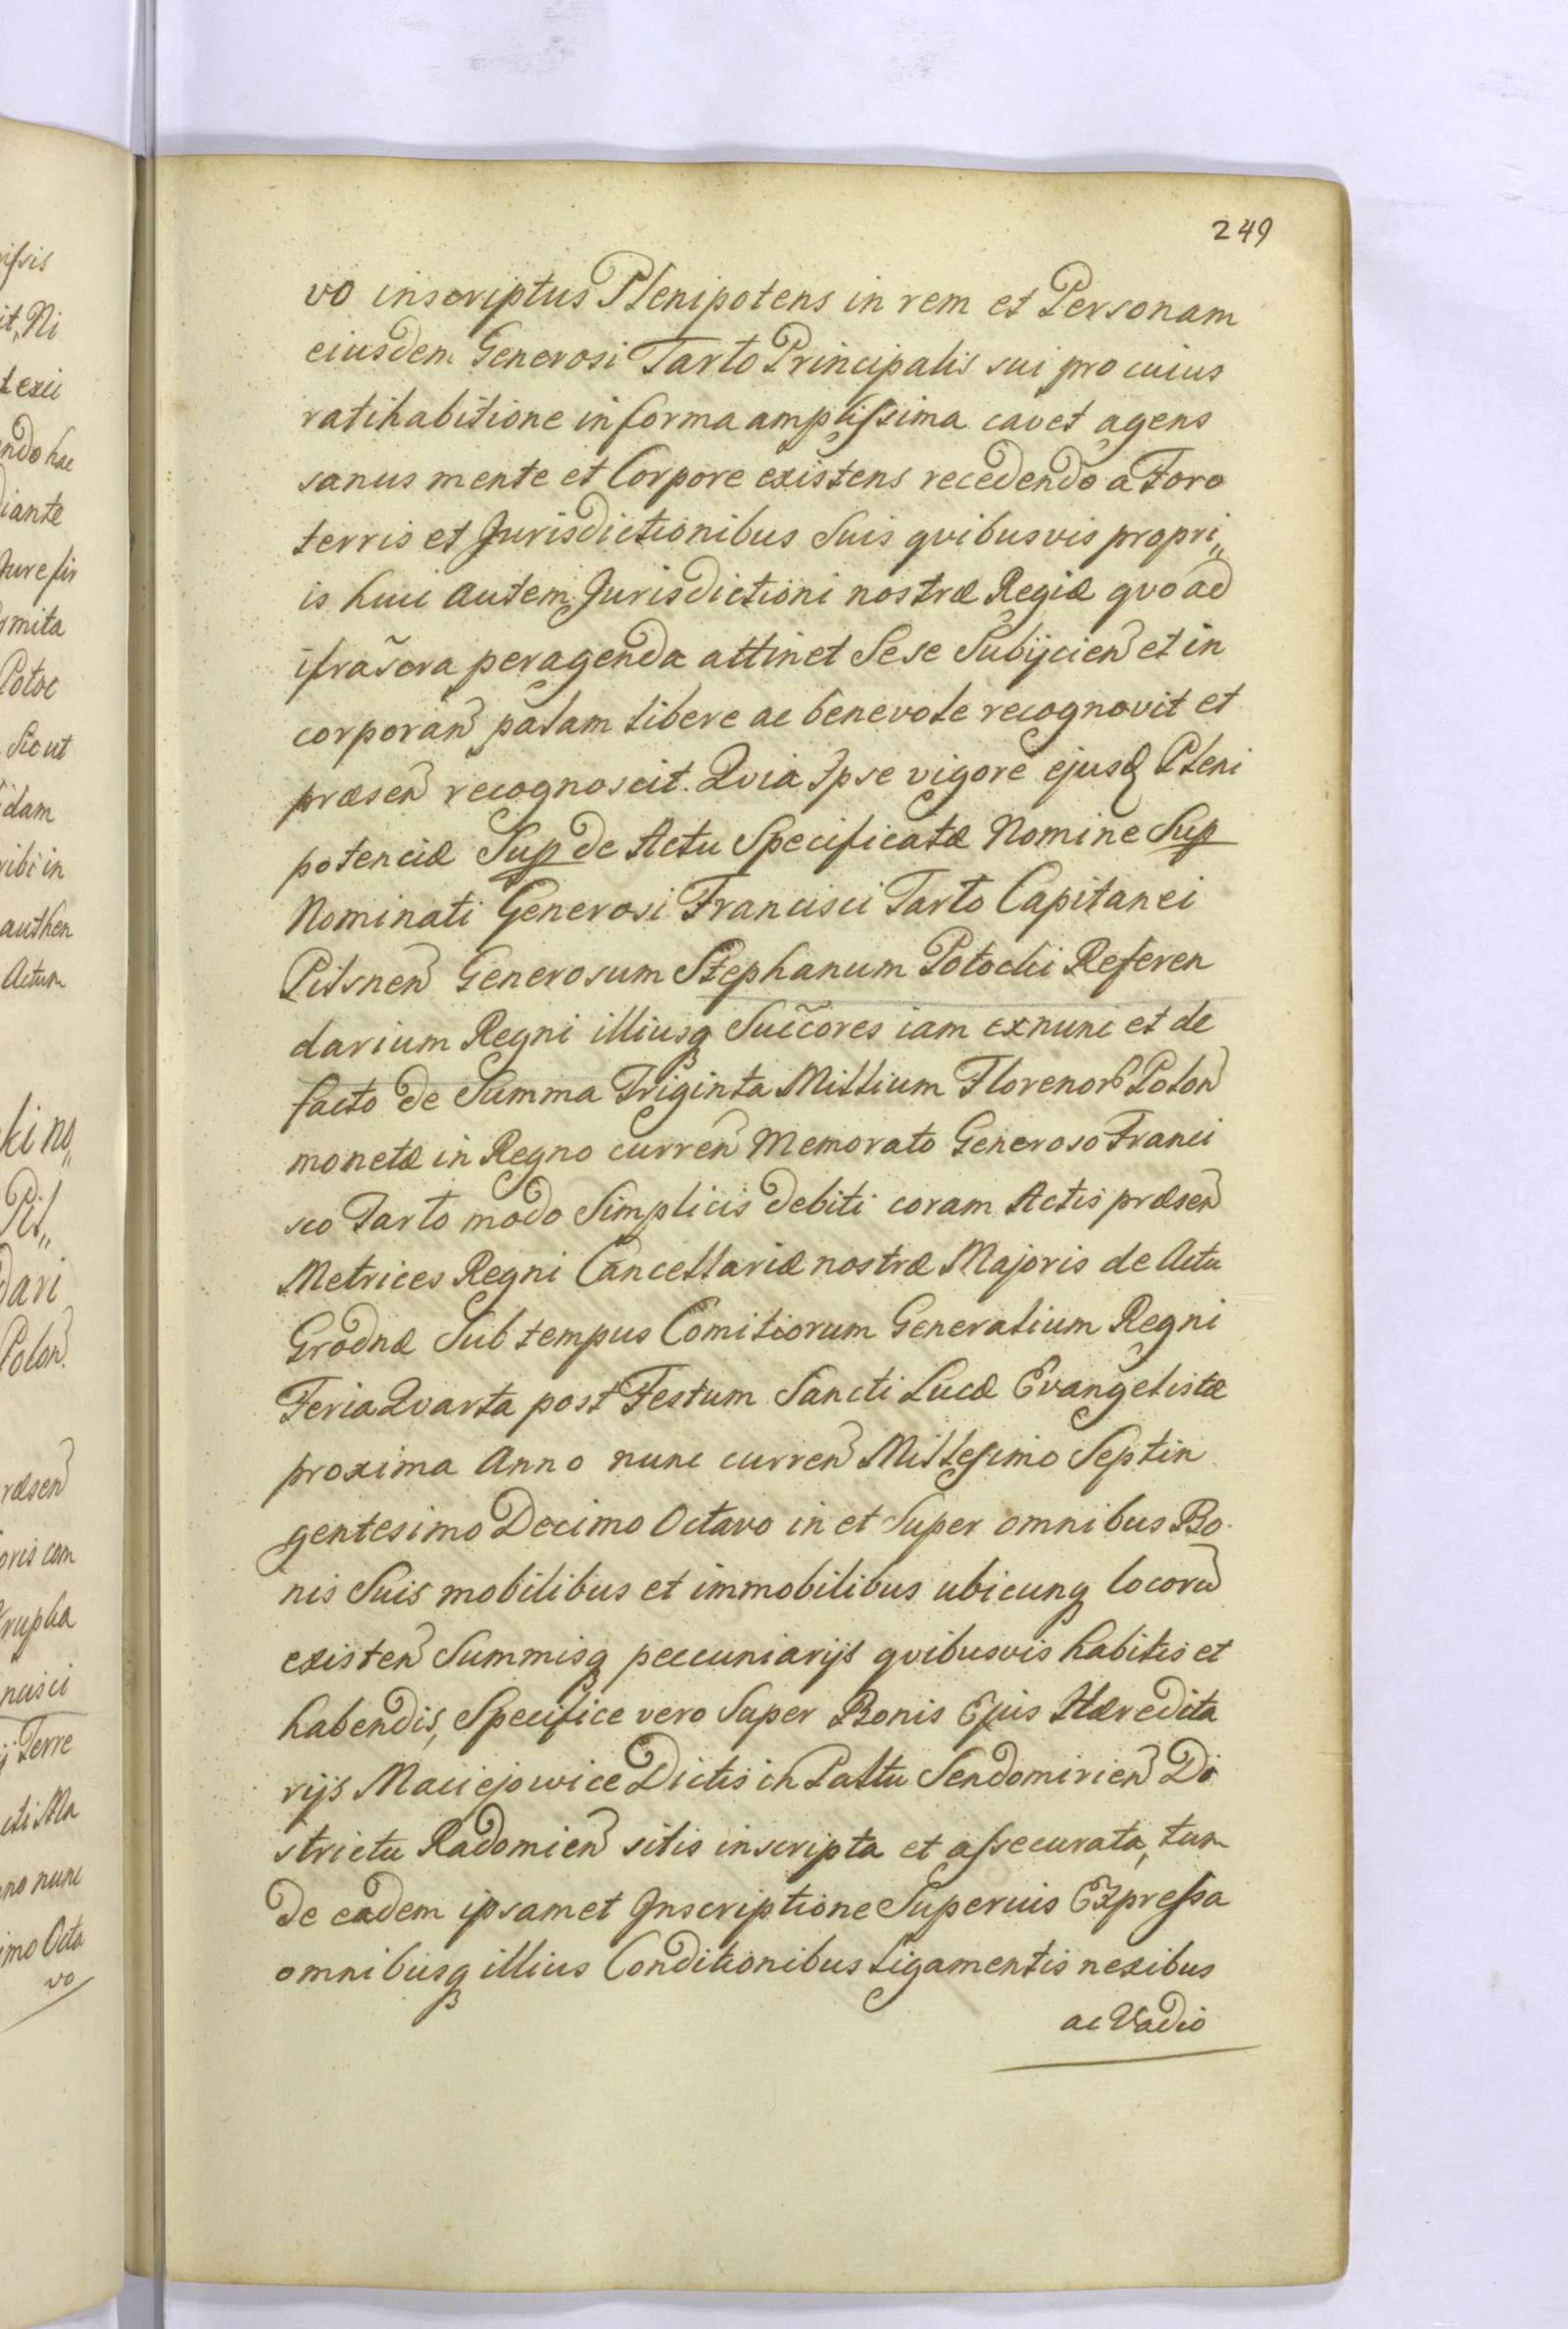 249
vo inscriptus Plenipotens in rem et Personam
eiusdem Generosi Tarło Principalis sui pro cuius
ratihabitione in forma amplissima cavet agens
sanus mente et Corpore existens recedendo a Foro
terris et Jurisdictionibus Suis qvibusvis propri„
is huic autem Jurisdictioni nostræ Regiæ qvo ad
ifrãscra peragenda attinet Sese Subijcien et in
corporan palam libere ac benevole recognovit et
præsen recognoscit. Qvia Ipse vigore ejusd Pleni
potenciæ Sup de Actu Specificatæ Nomine Sup
Nominati Generosi Francisci Tarło Capitanei
Pilsnen Generosum Stephanum Potocki Referen
darium Regni illiusq Succores iam exnunc et de
facto de Summa Triginta Millium Florenor Polon
monetæ in Regno curren Memorato Generoso Franci
sco Tarło modo Simplicis debiti coram Actis præsen
Metrices Regni Cancellariæ nostræ Majoris de Actu
Grodnæ Sub tempus Comitiorum Generalium Regni
Feria Qvarta post Festum Sancti Lucæ Evangelistæ
proxima Anno nunc curren Millesimo Septin
gentesimo Decimo Octavo in et Super omnibus Bo
nis Suis mobilibus et immobilibus ubicunq locorũ
existen Summisq peccuniarijs qvibusvis habitis et
habendis, Specifice vero Super Bonis Ejus Hæredita
rijs Maciejowice Dictis in Palttu Sendomirien Di
strictu Radomien sitis inscripta et assecurata, tum
de eadem ipsamet Inscriptione Superius Expressa
omnibusq illius Conditionibus Ligamentis nexibus
ac Vadio